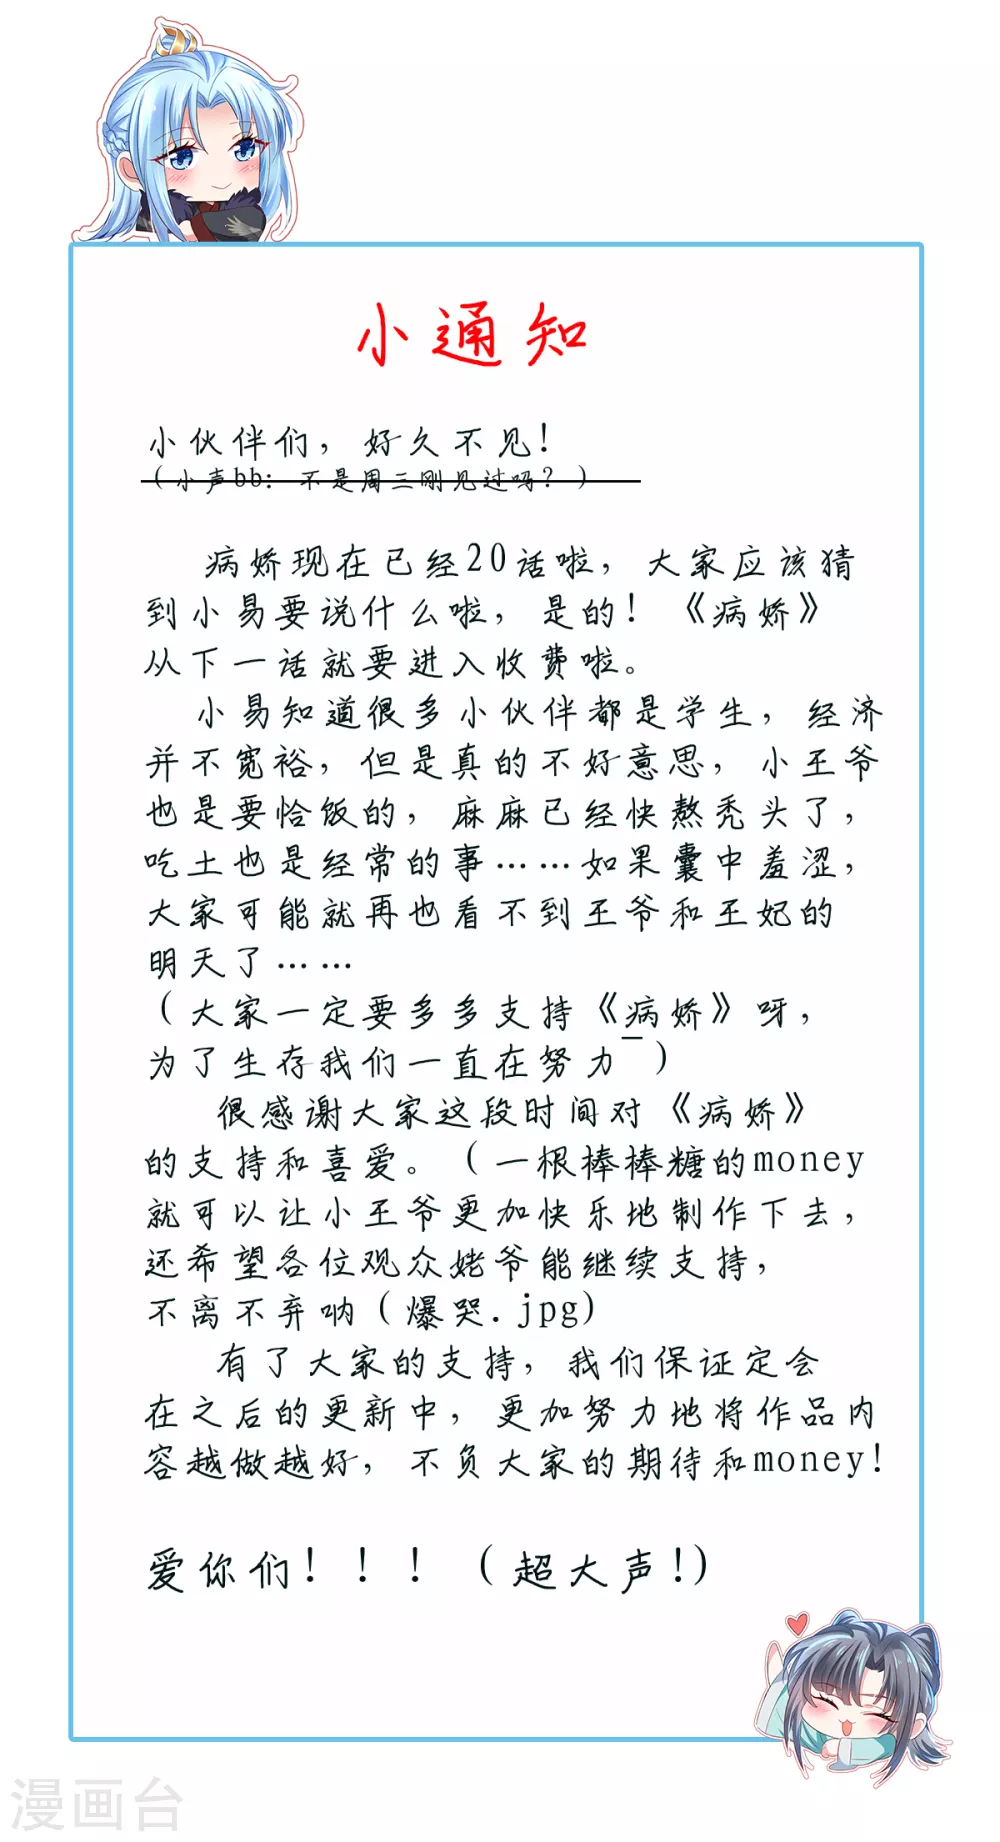 小通知
小伙伴们，好久不见！
（小声bb：不是周三刚见过吗？）
病娇现在已经20话啦，大家应该猜
到小易要说什么啦，是的！《病娇》
从下一话就要进入收费啦。
小易知道很多小伙伴都是学生，经济
并不宽裕，但是真的不好意思，小王爷
也是要恰饭的，麻麻已经快熬秃头了，
吃土也是经常的事……如果囊中羞涩，
大家可能就再也看不到王爷和王妃的
明天了……
（大家一定要多多支持《病娇》呀，
为了生存我们一直在努力¯）
很感谢大家这段时间对《病娇》
的支持和喜爱。（一根棒棒糖的money
就可以让小王爷更加快乐地制作下去，
还希望各位观众姥爷能继续支持，
不离不弃呐（爆哭.jpg)
有了大家的支持，我们保证定会
在之后的更新中，更加努力地将作品内
容越做越好，不负大家的期待和money!
爱你们！！！（超大声!)
漫画台